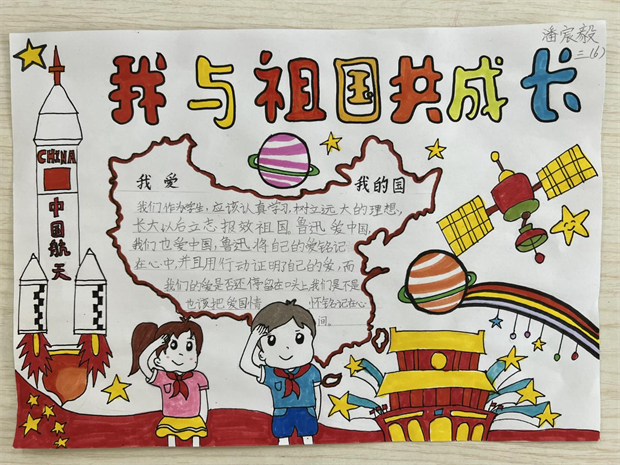 潘宸毅
三(6)
我与祖国共成长
CHINA
中国航天
我爱 我的国
我们作为学生,应该认真学习,树立远大的理想,
长大以后立志报效祖国,鲁迅爱中国,
我们也爱中国,鲁迅将自己的爱铭记
在心中,并且用行动证明了自己的爱,而
我们的爱是否还停留在口头上,我们是不是
也该把爱国情 怀铭记在心
间。